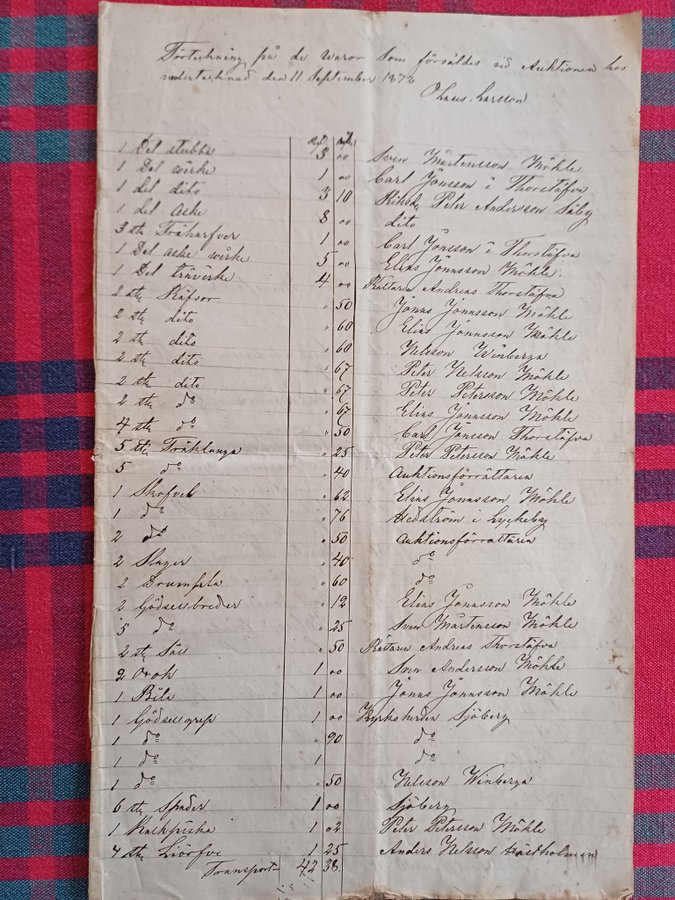 Förteckning på de Waror som försåldes vid Auktionen hos
undertecknad den 11 September 1872
Larsson
1 Del stubba 3 00 Sven Mårtensson Möhle
1 Del wirke 1 00 Carl Jönsson i Thorstäfva
1 del dito 3 10 Riksd. Peter Andersson Säby
1 del Aske 8 00 dito
3 st. Träharfvor 1 00 Carl Jönsson i Thorstäfva
1 Del aske wirke 5 00 Elias Jönnsson Möhle
1 Del träverke 4 00 Rättaren Andreas Thorstäfva
2 st. Räfsor " 50 Jonas Jönnsson Möhle
2 st. dito " 60 Elias Jönnsson Möhle
2 st. dito " 60 Nelsson Winberga
2 st. dito " 67 Peter Nelsson Möhle
2 st. dito " 67 Peter Petersson Möhle
2 st. do " 67 Elias Jönnsson Möhle
4 st. do " 50 Carl Jönsson Thorstäfva
5 st. " 25 Peter Petersson Möhle
5 do " 40 Auktionsförrättaren
1 Skofvel " 62 Elias Jönnsson Möhle
1 do " 76 Hedström i Lyckeby
2 do " 50 Auktionsförrättaren
2 Slagor " 40 do
2 " 60 do
2 Gödselbreder " 12 Elias Jönnsson Möhle
5 do " 25 Sven Mårtensson Möhle
2 st. Såll " 50 Rättaren Andreas Thorstäfva
2 Orok 1 00 Sven Andersson Möhle
1 Bila 1 00 Jonas Jönnsson Möhle
1 Gödselgrep 1 00 Kyrkoherden Sjöberg
1 do " 90 do
1 do 1 1 do
1 do " 50 Nelsson Winberga
6 st. Spader 1 00 Sjöberg
1 1 02 Peter Petersson Möhle
4 st. 1 25 Anders Nelsson
Transport 42 38